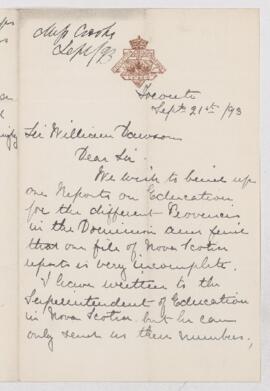 Miss Cooke
Sept /93
Toronto
Sept. 21st /93
Sir William Dawson
Dear Sir
We wish to bind up
our Reports on Education
for the different Provinces
in the Dominion and find
that our file of Nova Scotia
reports is very incomplete.
I have written to the
Superintendent of Education
in Nova Scotia but he can
only send us three numbers,